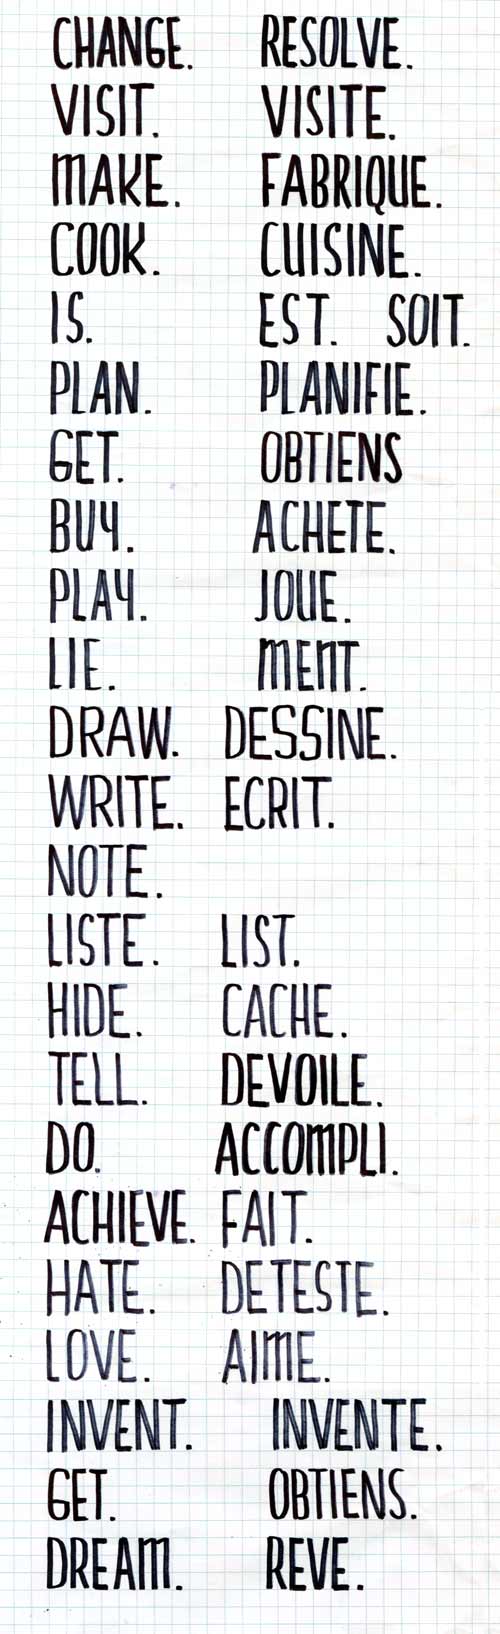 CHANGE. RESOLVE.
VISIT. VISITE.
MAKE. FABRIQUE.
COOK. CUISINE.
IS. EST. SOIT.
PLAN. PLANIFIE.
GET. OBTIENS
BUY. ACHETE.
PLAY. JOUE.
LIE. MENT.
DRAW. DESSINE.
WRITE. ECRIT.
NOTE.
LISTE. LIST.
HIDE. CACHE.
TELL. DEVOILE.
DO. ACCOMPLI.
ACHIEVE. FAIT.
HATE. DETESTE.
LOVE. AIME.
INVENT. INVENTE.
GET. OBTIENS.
DREAM. REVE.